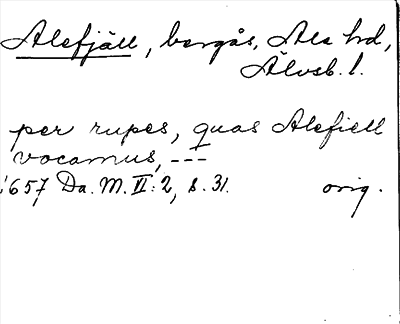 Alefjäll, bergås, Ale hd,
Älvsb. l.
per rupes, quas Alefiell
vocamus, ---
1657 Da. M. II: 2, s. 31. orig.